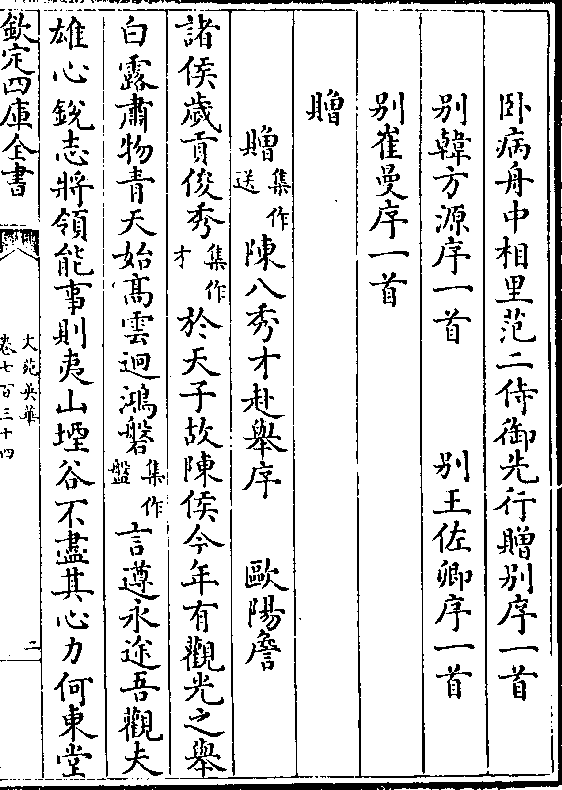 卧病舟中相里范二侍御先行贈别序一首
别韓方源序一首　别王佐卿序一首
别崔曼序一首
贈
贈集作送陳八秀才赴舉序　歐陽詹
諸侯歲貢俊秀集作才於天子故陳侯今年有觀光之舉
白露肅物青天始髙雲迥鴻磐集作盤言遵永途吾觀夫
雄心鋭志將領能事則夷山堙谷不盡其心力何東堂
欽定四庫全書
文苑英華
卷七百三十四
二